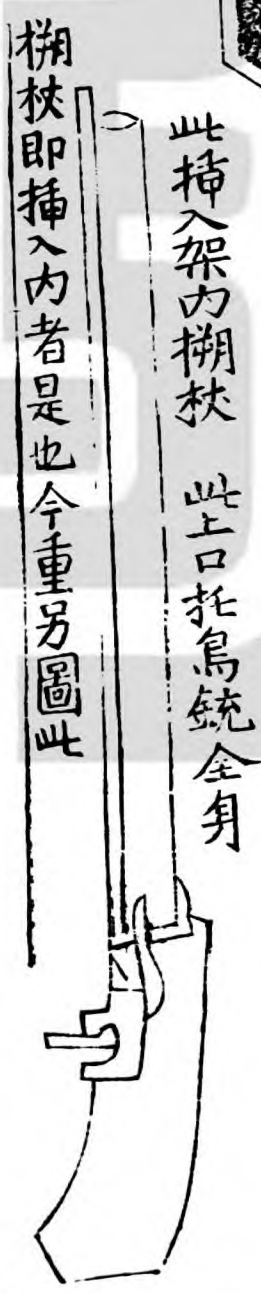 此挿入架内搠杖　此上口托鳥銃全身
搠杖即挿入内者是也今重另圖此